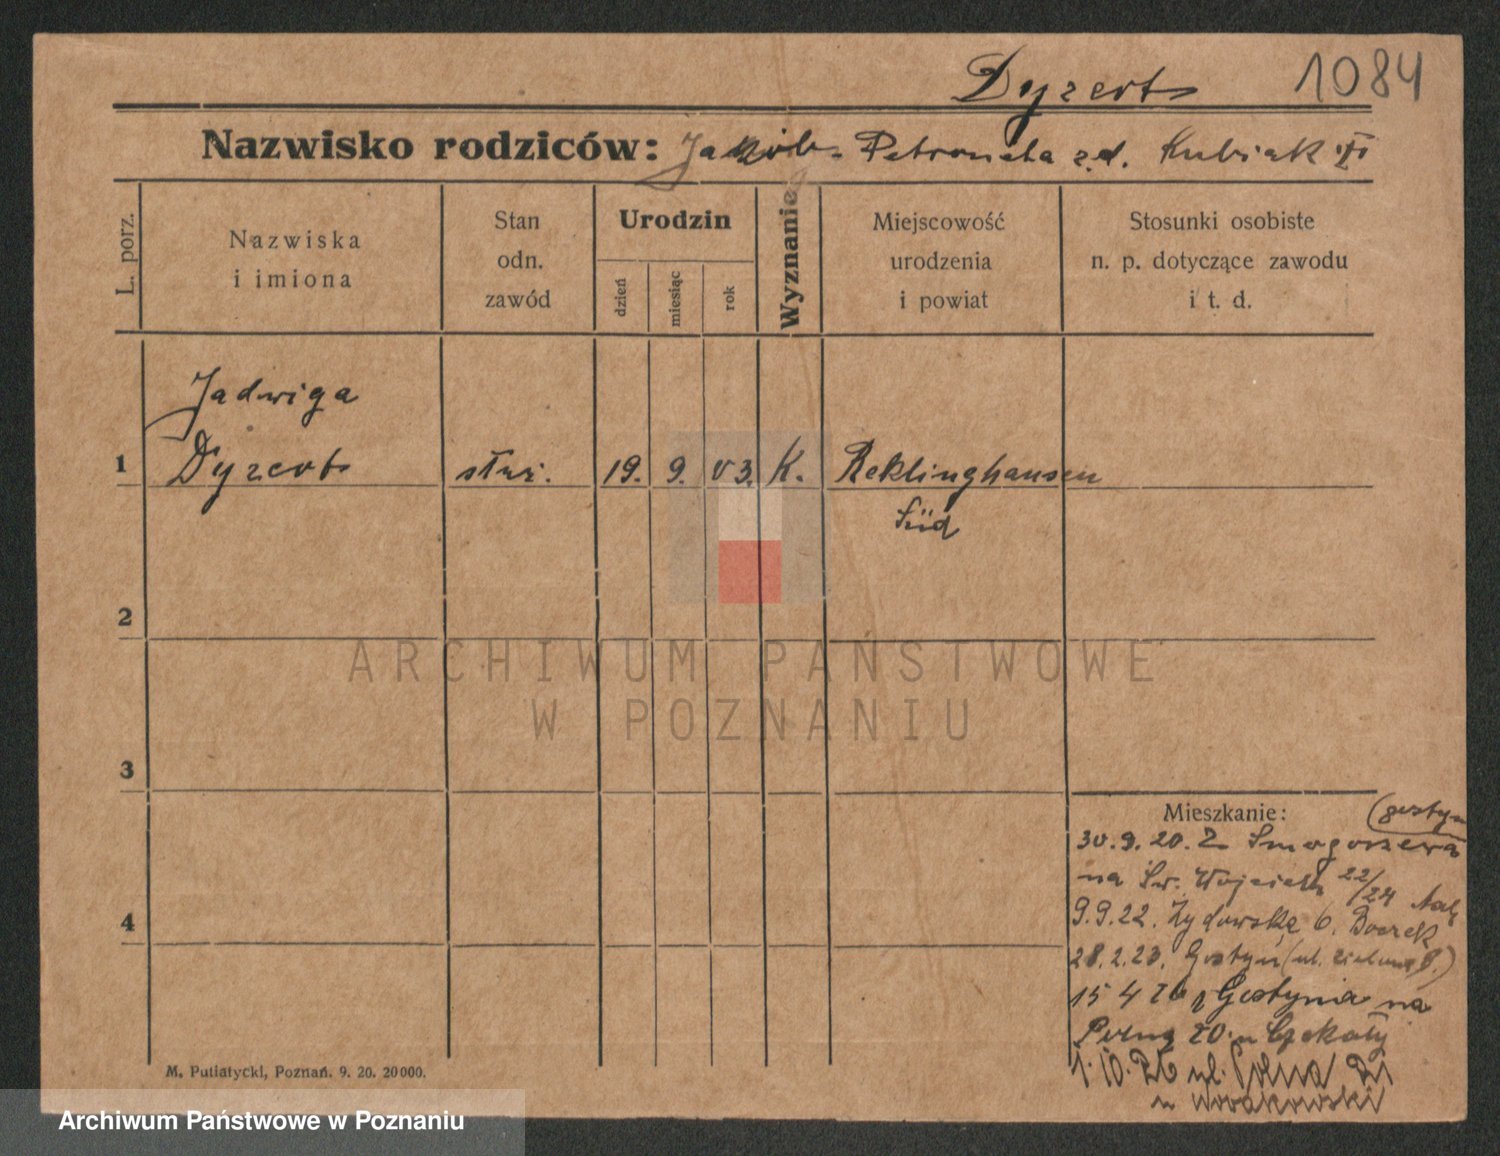 Dyzert 1084
Nazwisko rodziców: Jakób. Petronela z.d. Kubiak
L. porz.
Nazwiska
i imiona
Stan
odn.
zawód
Urodzin
dzień
miesiąc
rok
Wyznanie
Miejscowość
urodzenia
i powiat
Stosunki osobiste
n. p. dotyczące zawodu
i t. d.
Jadwiga
1 Dyzert służ. 19. 9. 03. K. Reklinghausen
Süd
2
ARCHIWUM PAŃSTWOWE
W POZNANIU
3
Mieszkanie: (gostyń
30.9.20. Z Smogorzewa
na Św. Wojciech 22/24
9.9.22. Żydowską 6. Boorek
28.2.23. Gostyń (ul. zielona 8.)
15 4 26 z Gostynia na
20 u Czekały
1.10.26 ul. Polna
u Nowakowski
4
M. Putiatycki, Poznań. 9. 20. 20000.
Archiwum Państwowe w Poznaniu